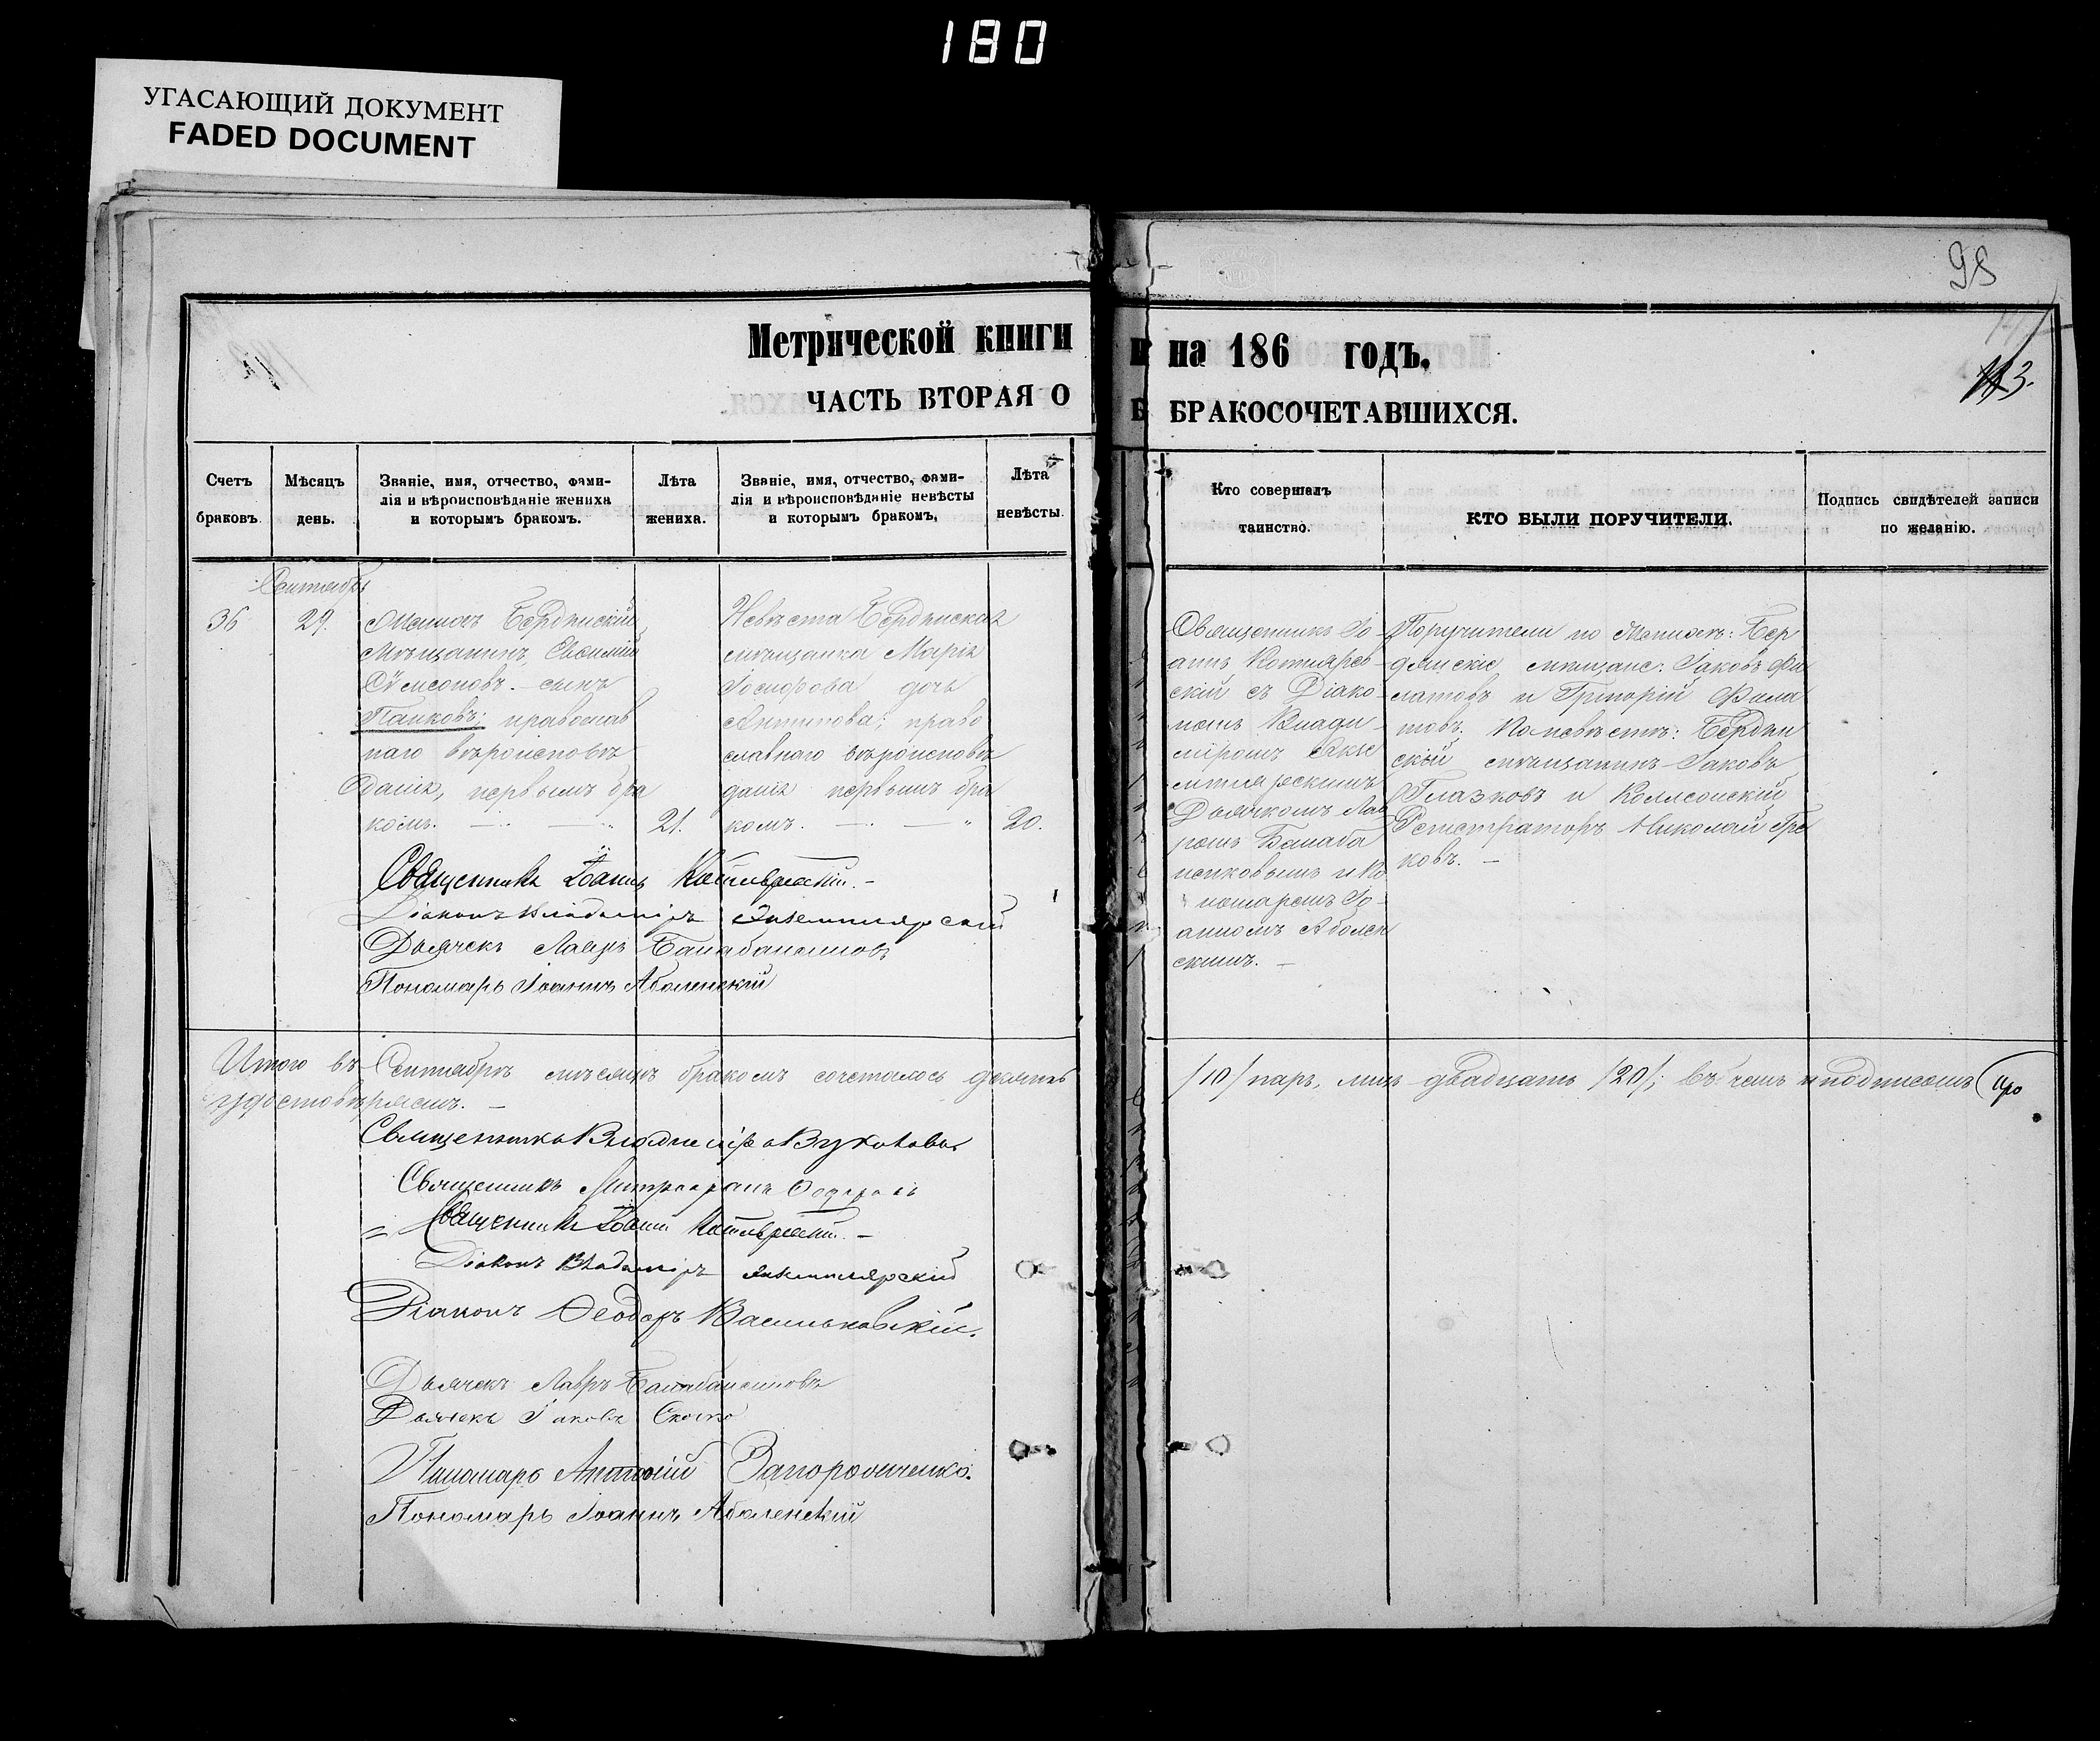 180
УГАСАЮЩИЙ ДОКУМЕНТ
FADED DOCUMENT
98
113.
Метрической книги на 186 годъ.
ЧАСТЬ ВТОРАЯ О БРАКОСОЧЕТАВШИХСЯ.
Счетъ браковъ.
Мѣсяцъ день.
Званіе, имя, отчество, фами-
лія и вѣроисповѣданіе жениха
и которымъ бракомъ.
Лѣта жениха.
Званіе, имя, отчество, фами-
лія и вѣроисповѣданіе невѣсты
и которымъ бракомъ.
Лѣта невѣсты.
Кто совершалъ
таинство.
КТО БЫЛИ ПОРУЧИТЕЛИ.
Подпись свидѣтелей записи
по желанію.
Сентябрь
36
29.
Женихъ Бердянскій
Мѣщанинъ,
сынъ
Панковъ; православ
наго вѣроисповѣ
данія, первымъ бра
комъ. —
21.
Невѣста Бердянская
мѣщанка Марія
Іосифова дочь
Антипова; право
славнаго вѣроисповѣ
данія первымъ бра
комъ. —
20.
Священникъ Іо-
аннъ Котляров-
скій съ Діако-
номъ Влади-
міромъ Экзе
мплярскимъ
Дьячкомъ Лав
ромъ Балаба
ненковымъ и По
номаремъ Іо-
анномъ Аболен
скимъ. —
Поручители по Женихѣ: Бер
дянскіе мѣщане: Іаковъ Фи
латовъ и Григорій Фила
товъ; По невѣстѣ: Бердян
скій мѣщанинъ Іаковъ
Глазковъ и Коллежскій
Регистраторъ Николай Гре
ковъ. —
Священникъ Іоаннъ Котляревскій. —
Діаконъ Владиміръ Экземплярскій
Дьячекъ Лавръ Балабаненковъ
Пономарь Іоаннъ Аболенскій
Итого въ Сентябрѣ мѣсяцѣ бракомъ сочеталось десять /10/ паръ, лицъ двадцать /20/; въ чемъ и подписомъ
удостовѣряемъ. —
Священникъ Владиміръ
Священникъ Митрофанъ
Священникъ Іоаннъ Котляревскій. —
Діаконъ Владиміръ Экземплярскій
Діаконъ Ѳеодоръ Васильковскій.
Дьячекъ Лавръ Балабаненковъ
Дьячекъ Іаковъ
Пономарь Антоній Запорожченко.
Пономарь Іоаннъ Аболенскій